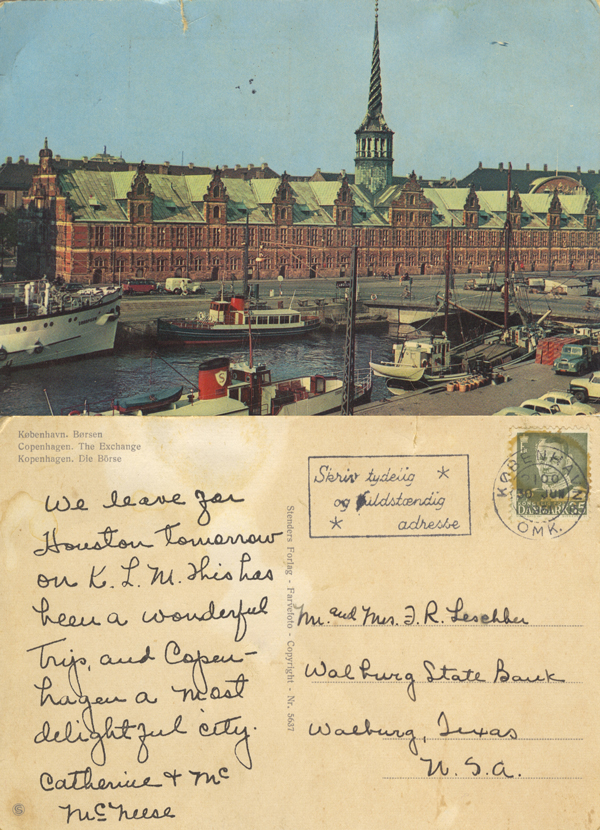 S
København. Børsen
Copenhagen. The Exchange
Kopenhagen. Die Börse
We leave for
Houston tomorrow
on K.L.M. This has
been a wonderful
Trip, and Copen-
hagen a most
delightful city.
Catherine & Mc
McNeese
Stenders Forlag - Farvefoto - Copyright - Nr. 5637
Skriv tydelig *
og fuldstændig
* adresse
KØBENHAVN
30 JUN
OMK.
DANMARK
Mr. and Mrs. F. R. Leschber
Walburg State Bank
Walburg, Texas
U.S.A.